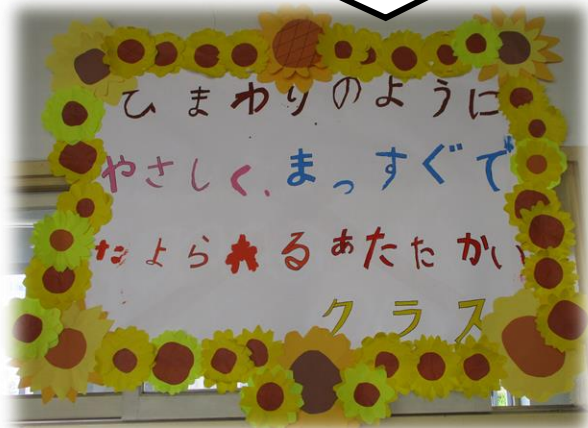 ひまわりのように
やさしく、まっすぐで
たよられるあたたかい
クラス